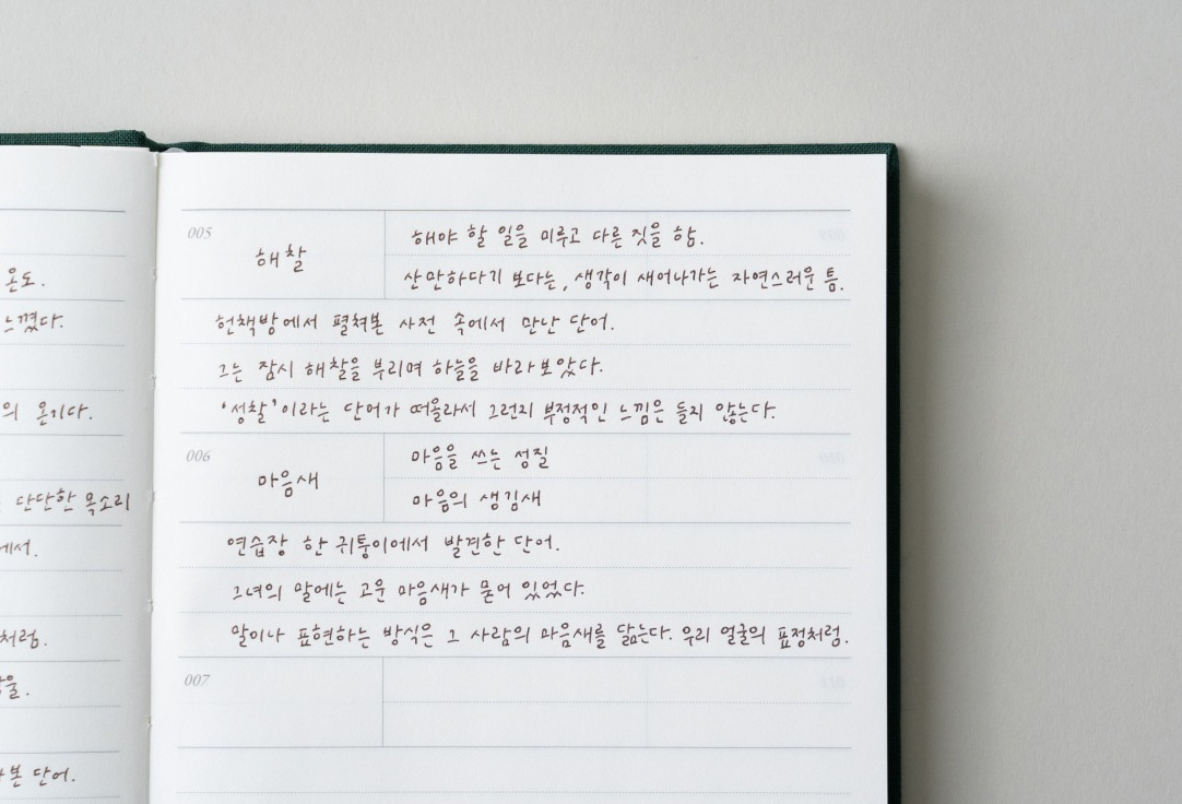 온도.
느꼈다.
의 온기다.
단단한 목소리
에서.
처럼.
본 단어.
005
해찰
해야 할 일을 미루고 다른 짓을 함.
산만하다기 보다는, 생각이 새어나가는 자연스러운 틈.
헌책방에서 펼쳐본 사전 속에서 만난 단어.
그는 잠시 해찰을 부리며 하늘을 바라보았다.
‘성찰’이라는 단어가 떠올라서 그런지 부정적인 느낌은 들지 않는다.
006
마음새
마음을 쓰는 성질
마음의 생김새
연습장 한 귀퉁이에서 발견한 단어.
그녀의 말에는 고운 마음새가 묻어 있었다.
말이나 표현하는 방식은 그 사람의 마음새를 닮는다. 우리 얼굴의 표정처럼.
007